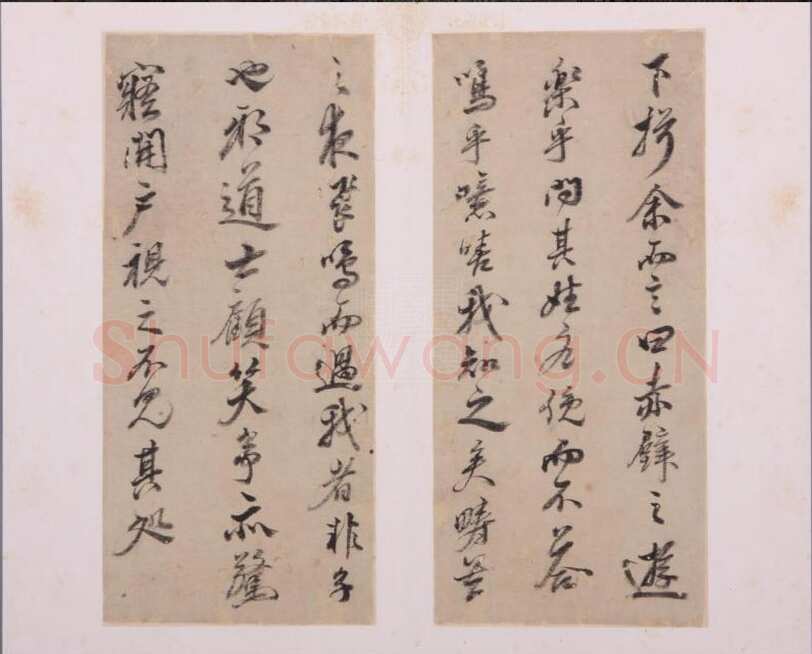 下揖余而言曰赤壁之遊
樂乎問其姓名俛而不答
嗚乎噫嘻我知之矣疇昔
之夜飛鳴而過我者非子
也邪道士顧笑予亦驚
寤開户視之不見其処
Shufawang.CN